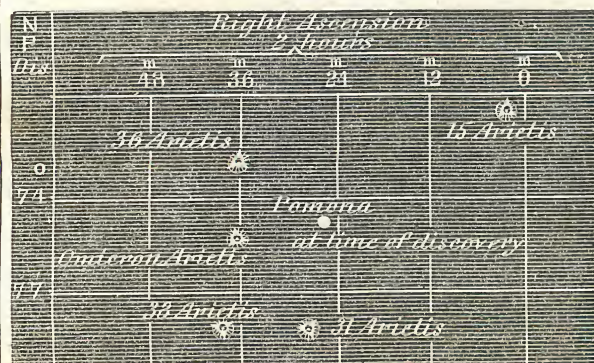 N
P
Dis
Right Ascension
2 hours
m m m m m
48 36 24 12 0
15 Arietis
36 Arietis
o
74
Pomona
at time of discovery
Omicron Arietis
77
38 Arietis 31 Arietis